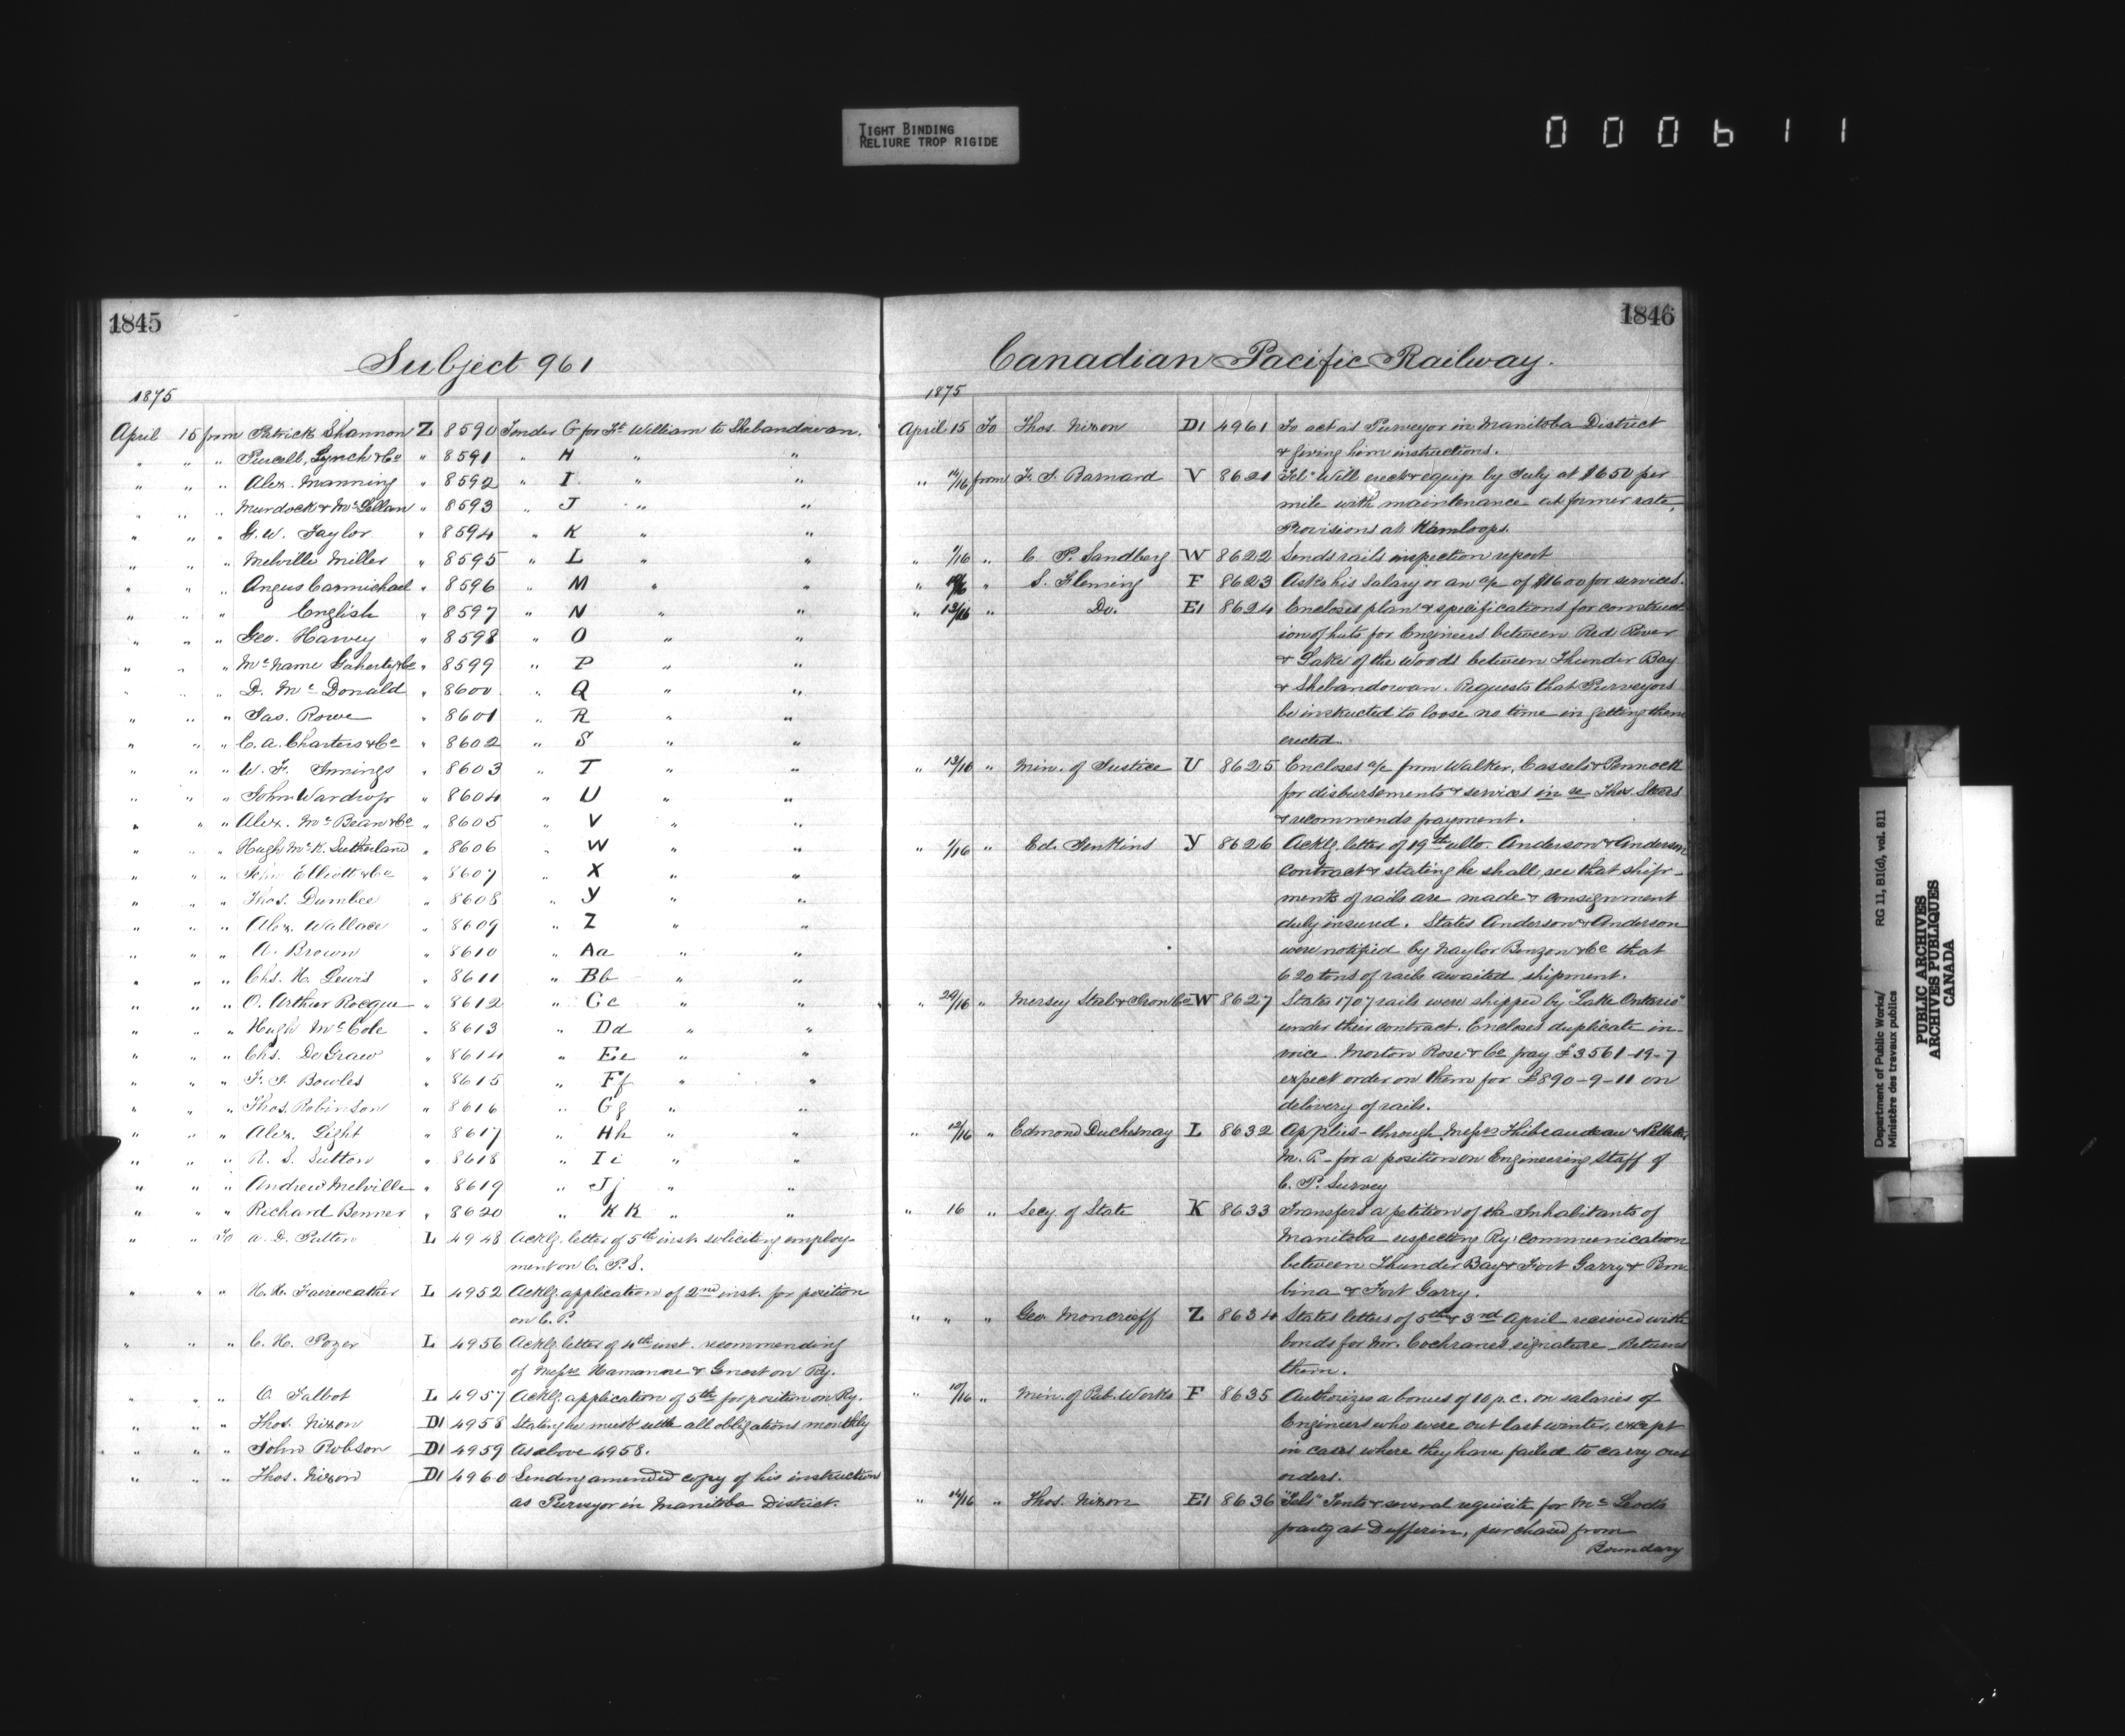 TIGHT BINDING
RELIURE TROP RIGIDE
000611
1845
Subject 961
1875
April 15 from Patrick Shannon Z 8590 Tender G for Ft. William to Shebandowan.
" " " Purcell, Lynch & Co " 8591 " H " "
" " " Alex. Manning " 8592 " I " "
" " " Murdock & McLellan " 8593 " J " "
" " " G. W. Taylor " 8594 " K " "
" " " Melville Miller " 8595 " L " "
" " " Angus Carmichael " 8596 " M " "
" " " English " 8597 " N " "
" " " Geo. Harvey " 8598 " O " "
" " " McName Gaherty & Co " 8599 " P " "
" " " D. McDonald " 8600 " Q " "
" " " Jas. Rowe " 8601 " R " "
" " " C. A. Charters & Co " 8602 " S " "
" " " W. F. Innings " 8603 " T " "
" " " John Wardrop " 8604 " U " "
" " " Alex. McBean & Co " 8605 " V " "
" " " Hugh McK. Sutherland " 8606 " W " "
" " " John Elliott & Co " 8607 " X " "
" " " Thos. Dumbee " 8608 " Y " "
" " " Alex. Wallace " 8609 " Z " "
" " " A. Brown " 8610 " Aa " "
" " " Chs. H. Lewis " 8611 " Bb " "
" " " O. Arthur Rocque " 8612 " Cc " "
" " " Hugh McCole " 8613 " Dd " "
" " " Chs. De Graw " 8614 " Ee " "
" " " F. J. Bowles " 8615 " Ff " "
" " " Thos. Robinson " 8616 " Gg " "
" " " Alex. Light " 8617 " Hh " "
" " " R. S. Sutton " 8618 " Ii " "
" " " Andrew Melville " 8619 " Jj " "
" " " Richard Benner " 8620 " KK " "
" " To A. D. Patten L 4948 Acklg. letter of 5th inst. soliciting employ-
ment on C. P. S.
" " " H. H. Faireweather L 4952 Acklg. application of 2nd inst. for position
on C. P.
" " " C. H. Pozer L 4956 Acklg. letter of 4th inst. recommending
of Messrs & on Ry.
" " " O. Talbot L 4957 Acklg. application of 5th for position on Ry.
" " " Thos. Nixon D1 4958 Stating he must settle all obligations monthly
" " " John Robson D1 4959 As above 4958.
" " " Thos. Nixon D1 4960 Sending amended copy of his instructions
as Purveyor in Manitoba District.
1846
Canadian Pacific Railway.
1875
April 15 To Thos. Nixon D1 4961 To act as Purveyor in Manitoba District
& giving him instructions.
" 14/16 from F. J. Barnard V 8621 "Tel" Will erect & equip by July at $650 per
mile with maintenance at former rate,
Provisions at Kamloops.
" 1/16 " C. P. Sandberg W 8622 Sends rails inspection report
" " S. Fleming F 8623 Asks his salary or an a/c of $1600 for services.
" 13/16 " Do. E1 8624 Encloses plan & specifications for construct
ion of huts for Engineers between Red River
& Lake of the Woods between Thunder Bay
& Shebandowan. Requests that Purveyors
be instructed to loose no time in getting them
erected.
" 13/16 " Min. of Justice U 8625 Encloses a/c from Walker, Cassels & Pennock
for disbursements & services in re Thos.
& recommends payment.
" 1/16 " Ed. Jenkins Y 8626 Acklg. letter of 19th ulto. Anderson & Anderson
contract & stating he shall see that ship-
ments of rails are made & consignment
duly insured. States Anderson & Anderson
were notified by Naylor Benzon & Co that
620 tons of rails awaited shipment.
" 20/16 " Mersey Steel & Iron Co W 8627 States 1707 rails were shipped by "Lake Ontario"
under their contract. Encloses duplicate in-
voice. Morton Rose & Co pay £3561-19-7
expect order on them for £890-9-11 on
delivery of rails.
" 12/16 " Edmond Duchesnay L 8632 Applies - through Messrs Thibeaudeau & Pelletier
M. P. - for a position on Engineering Staff of
C. P. Survey
" 16 " Secy. of State K 8633 Transfers a petition of the Inhabitants of
Manitoba respecting Ry. communication
between Thunder Bay & Fort Garry & Pem-
bina & Fort Garry.
" " " Geo. Moncrieff Z 8634 States letters of 5th & 3rd April received with
bonds for Mr. Cochrane's signature - Returns
them.
" 10/16 " Min. of Pub. Works F 8635 Authorizes a bonus of 10 p.c. on salaries of
Engineers who were out last winter, except
in cases where they have failed to carry out
orders.
" 14/16 " Thos. Nixon E1 8636 "Tels" Tents & several requisite for McLeod's
party at Dufferin, purchased from
Boundary
Department of Public Works/ RG 11, B1(d), vol. 811
Ministère des travaux publics
PUBLIC ARCHIVES
ARCHIVES PUBLIQUES
CANADA